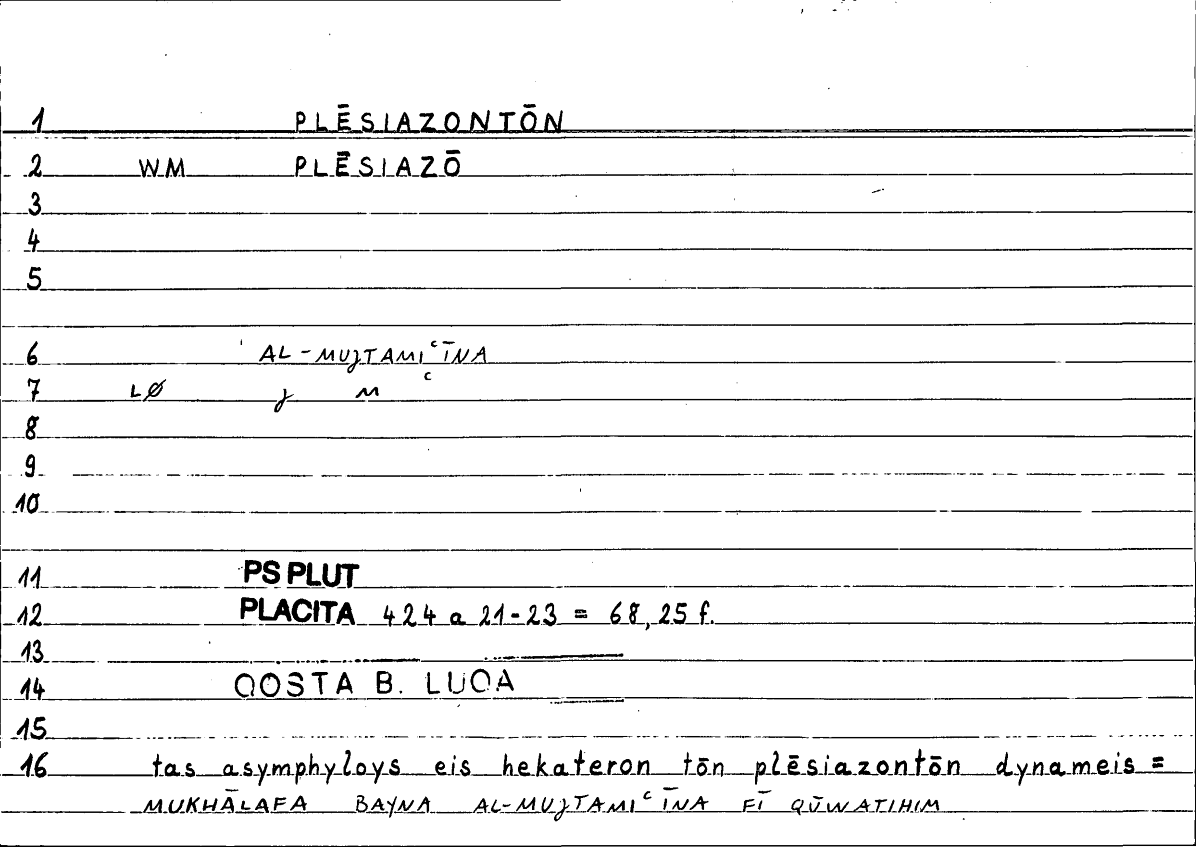 1 PLĒSIAZONTŌN
2 WM PLĒSIAZŌ
3
4
5
6 AL-MUJTAMIᶜĪNA
7 LØ j M ᶜ
8
9
10
11 PS PLUT
12 PLACITA 424 a 21-23 = 68,25 f.
13
14 QOSTA B. LUQA
15
16 tas asymphyloys eis hekateron tōn plēsiazontōn dynameis =
MUKHĀLAFA BAYNA AL-MUJTAMIᶜĪNA FĪ QŪWATIHIM